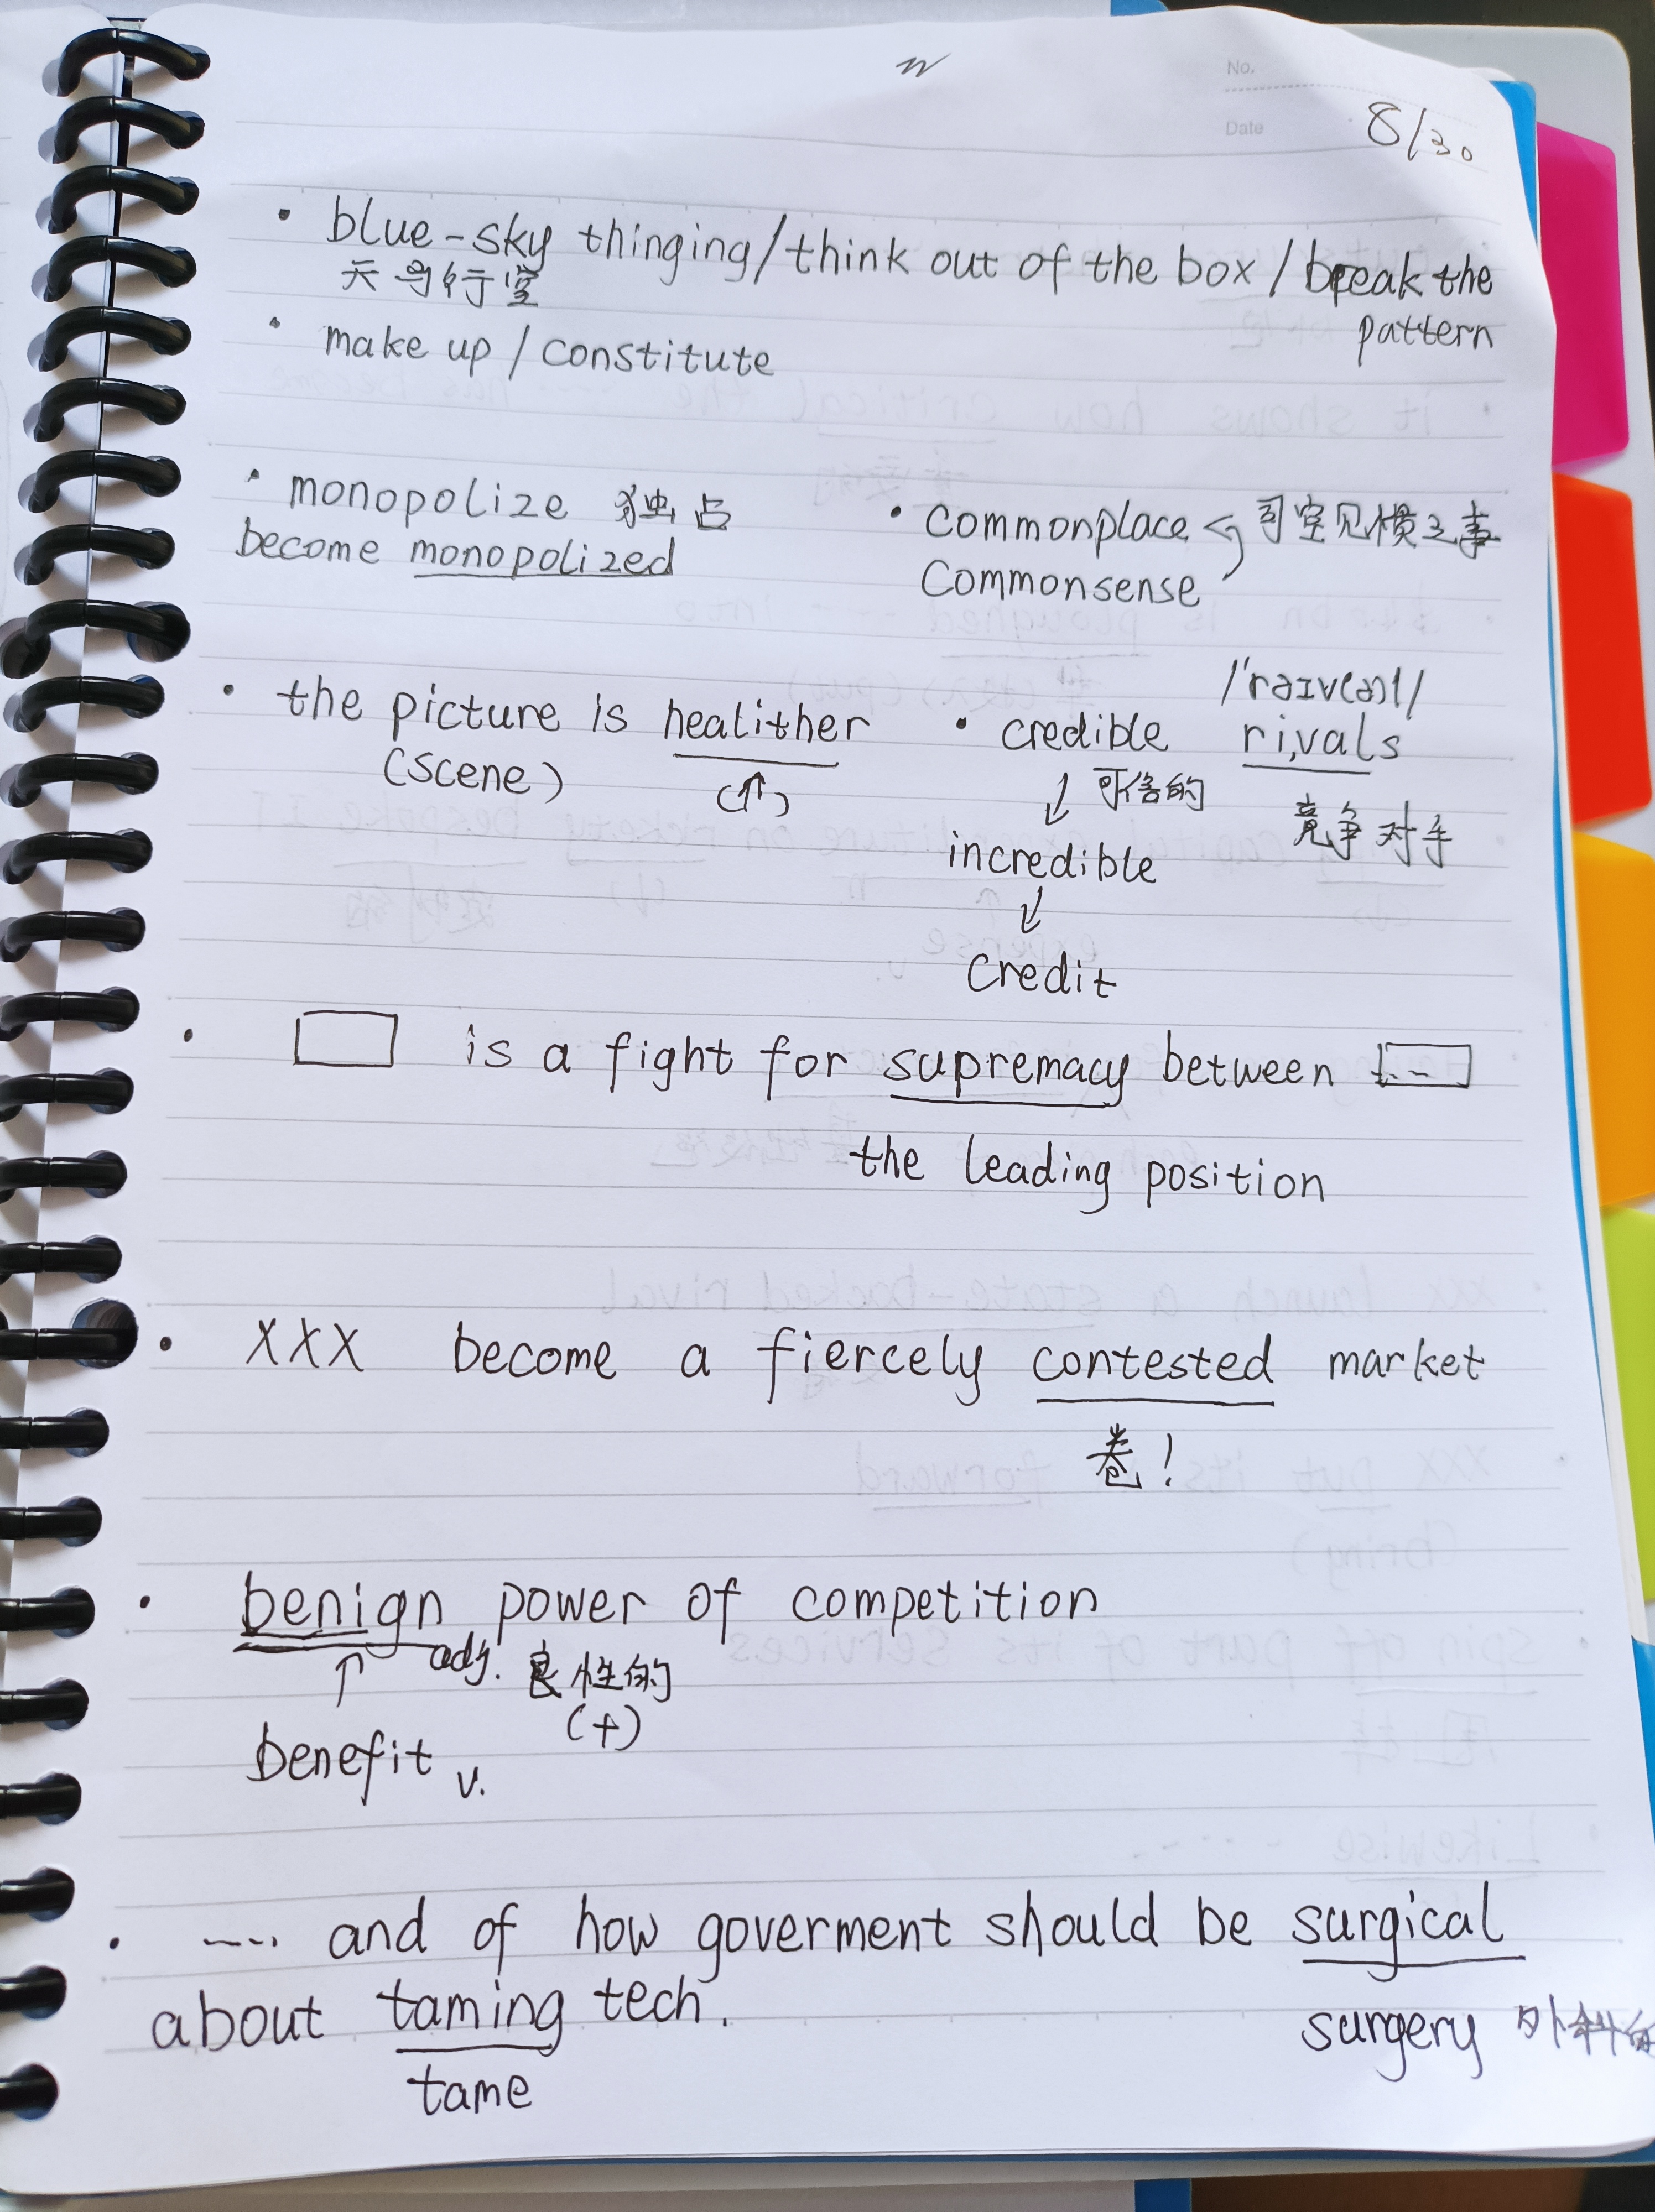 No.
Date
8/30
• blue-sky thinging/think out of the box/break the
pattern
天马行空
• make up / constitute
• monopolize 独占
become monopolized
• commonplace 司空见惯之事
commonsense
• the picture is healither
(scene) (↑)
/ˈraɪv(ə)l/
• credible rivals
↓ 可信的 竞争对手
incredible
↓
credit
• is a fight for supremacy between ...
the leading position
• XXX become a fiercely contested market
卷!
• benign power of competition
↑ adj. 良性的
(+)
benefit v.
• ---- and of how goverment should be surgical
about taming tech.
surgery 外科的
tame